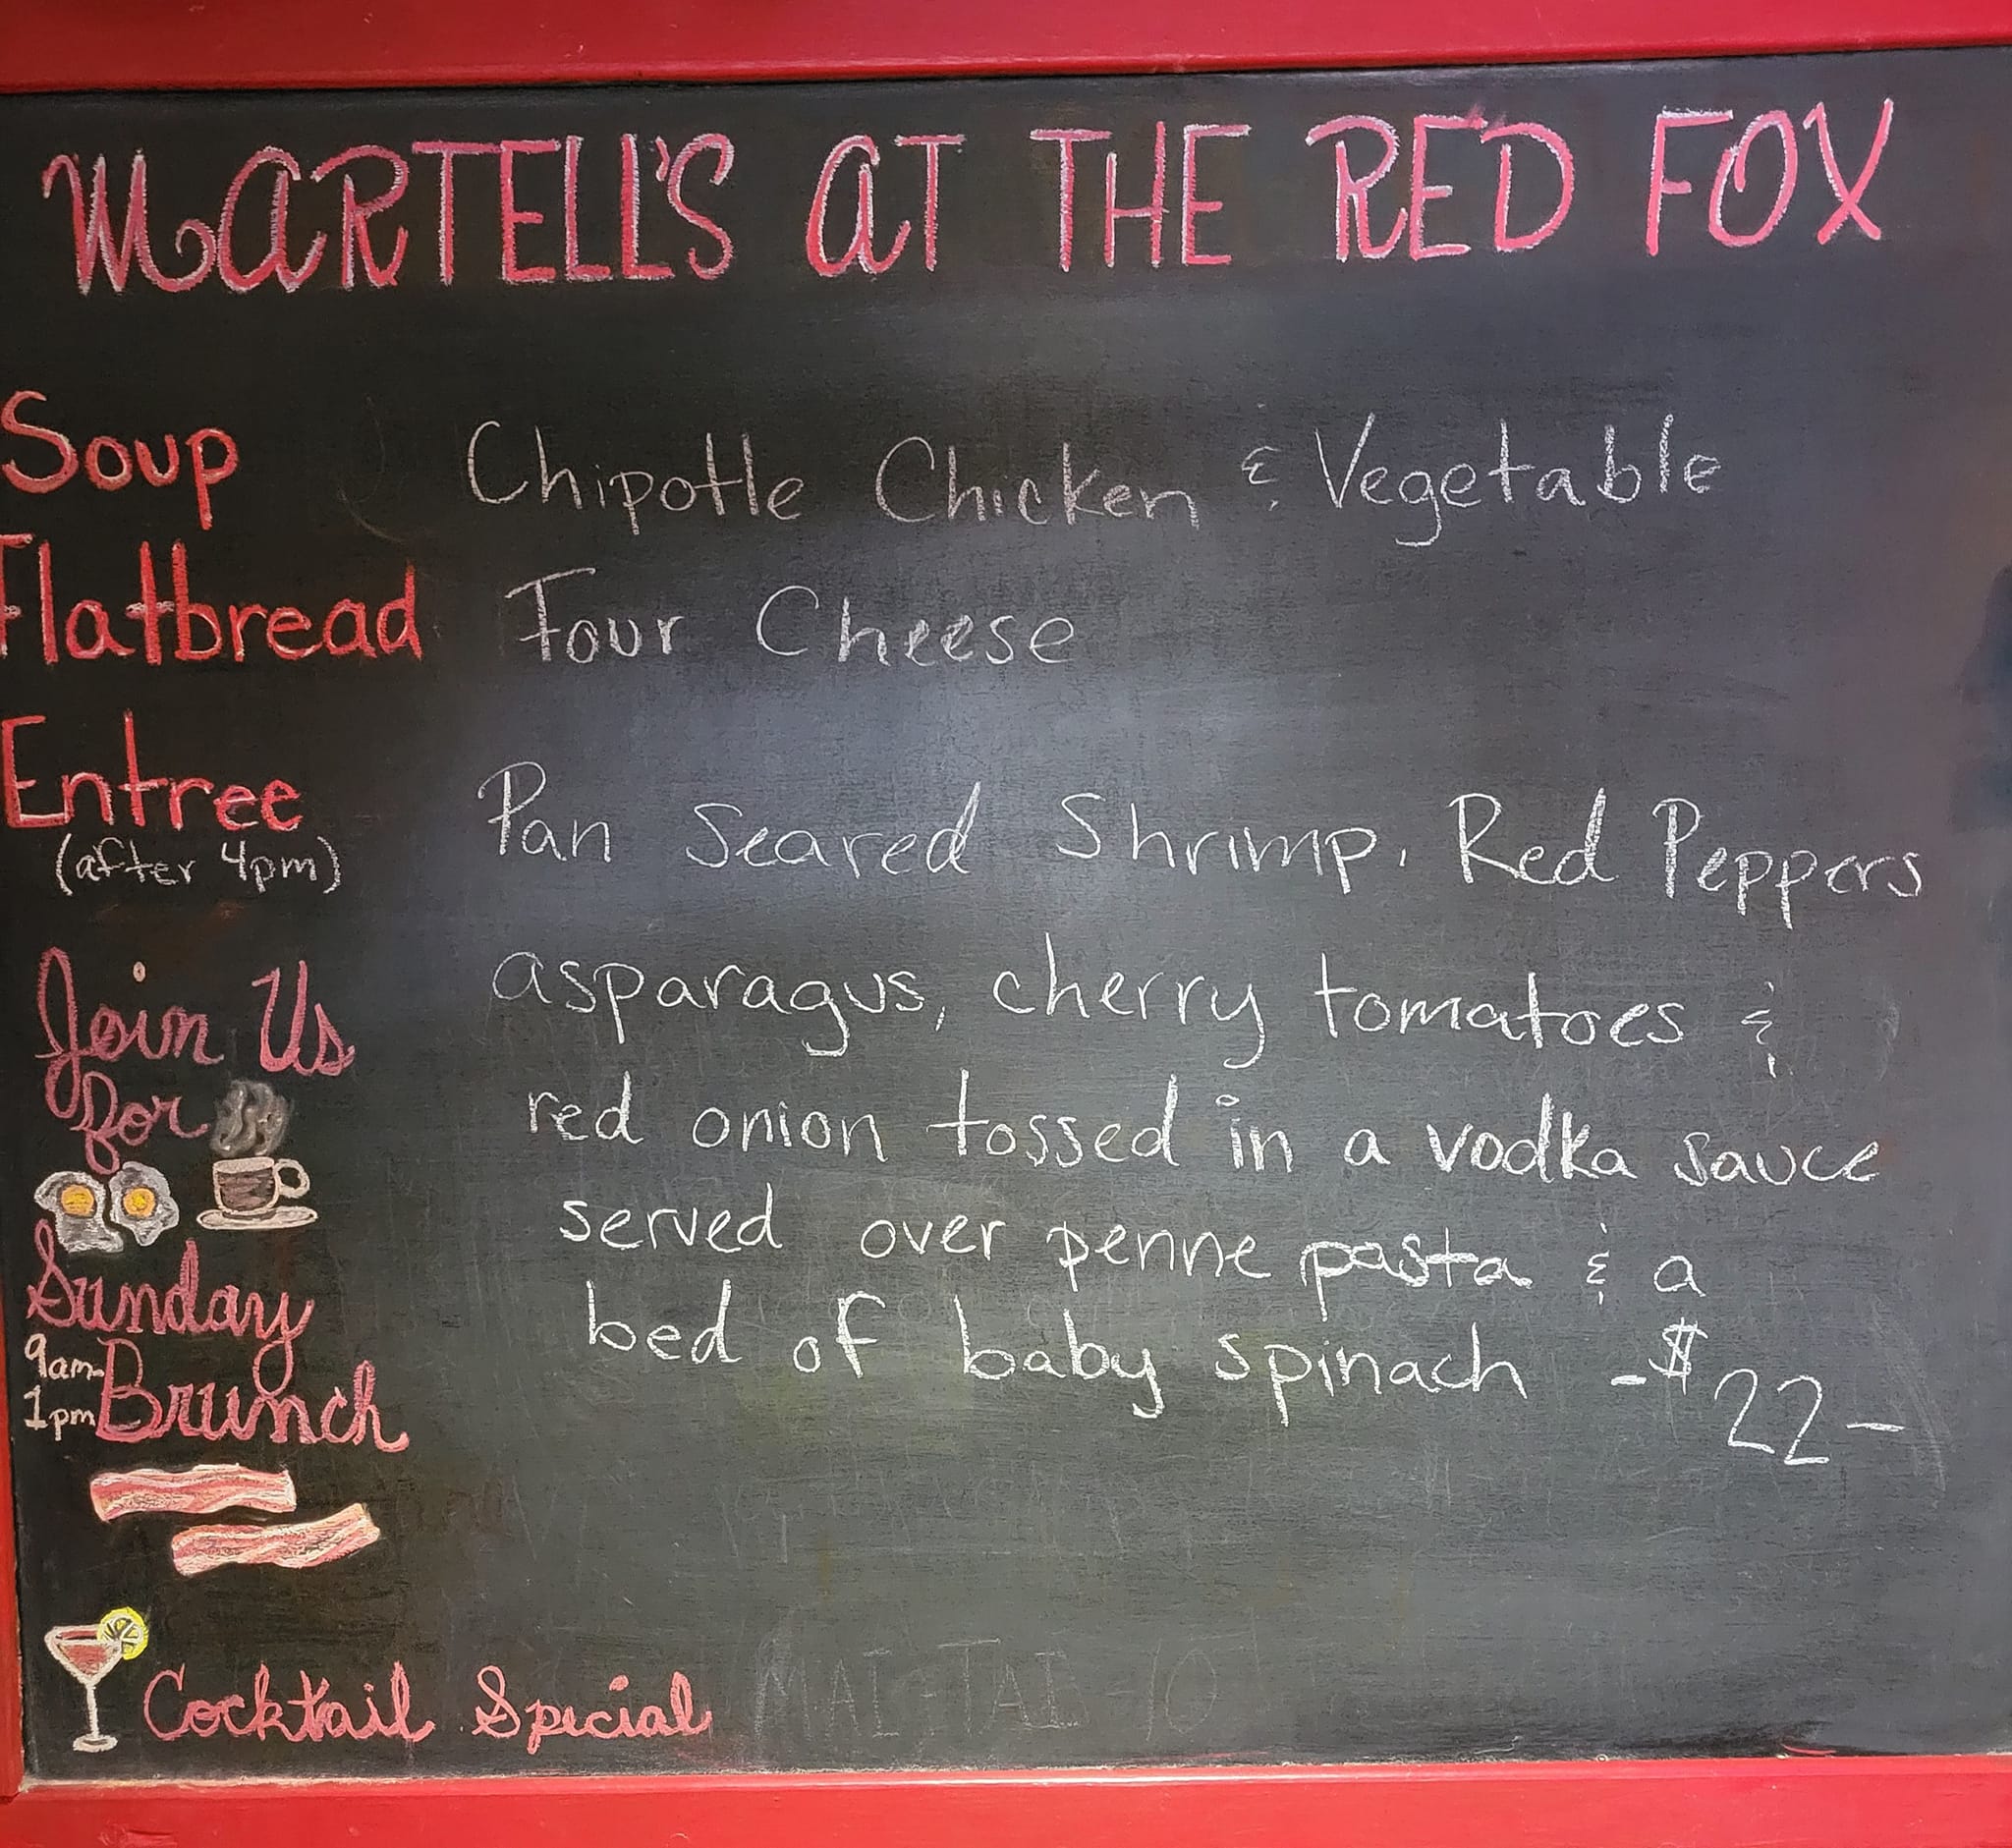 MARTELL'S AT THE RED FOX
Soup Chipotle Chicken & Vegetable
Flatbread Four Cheese
Entree
(after 4pm)
Pan Seared Shrimp, Red Peppers
asparagus, cherry tomatoes &
red onion tossed in a vodka sauce
served over penne pasta & a
bed of baby spinach -$22-
Join Us
for
Sunday
9am-
1pm Brunch
Cocktail Special MAI-TAI -10